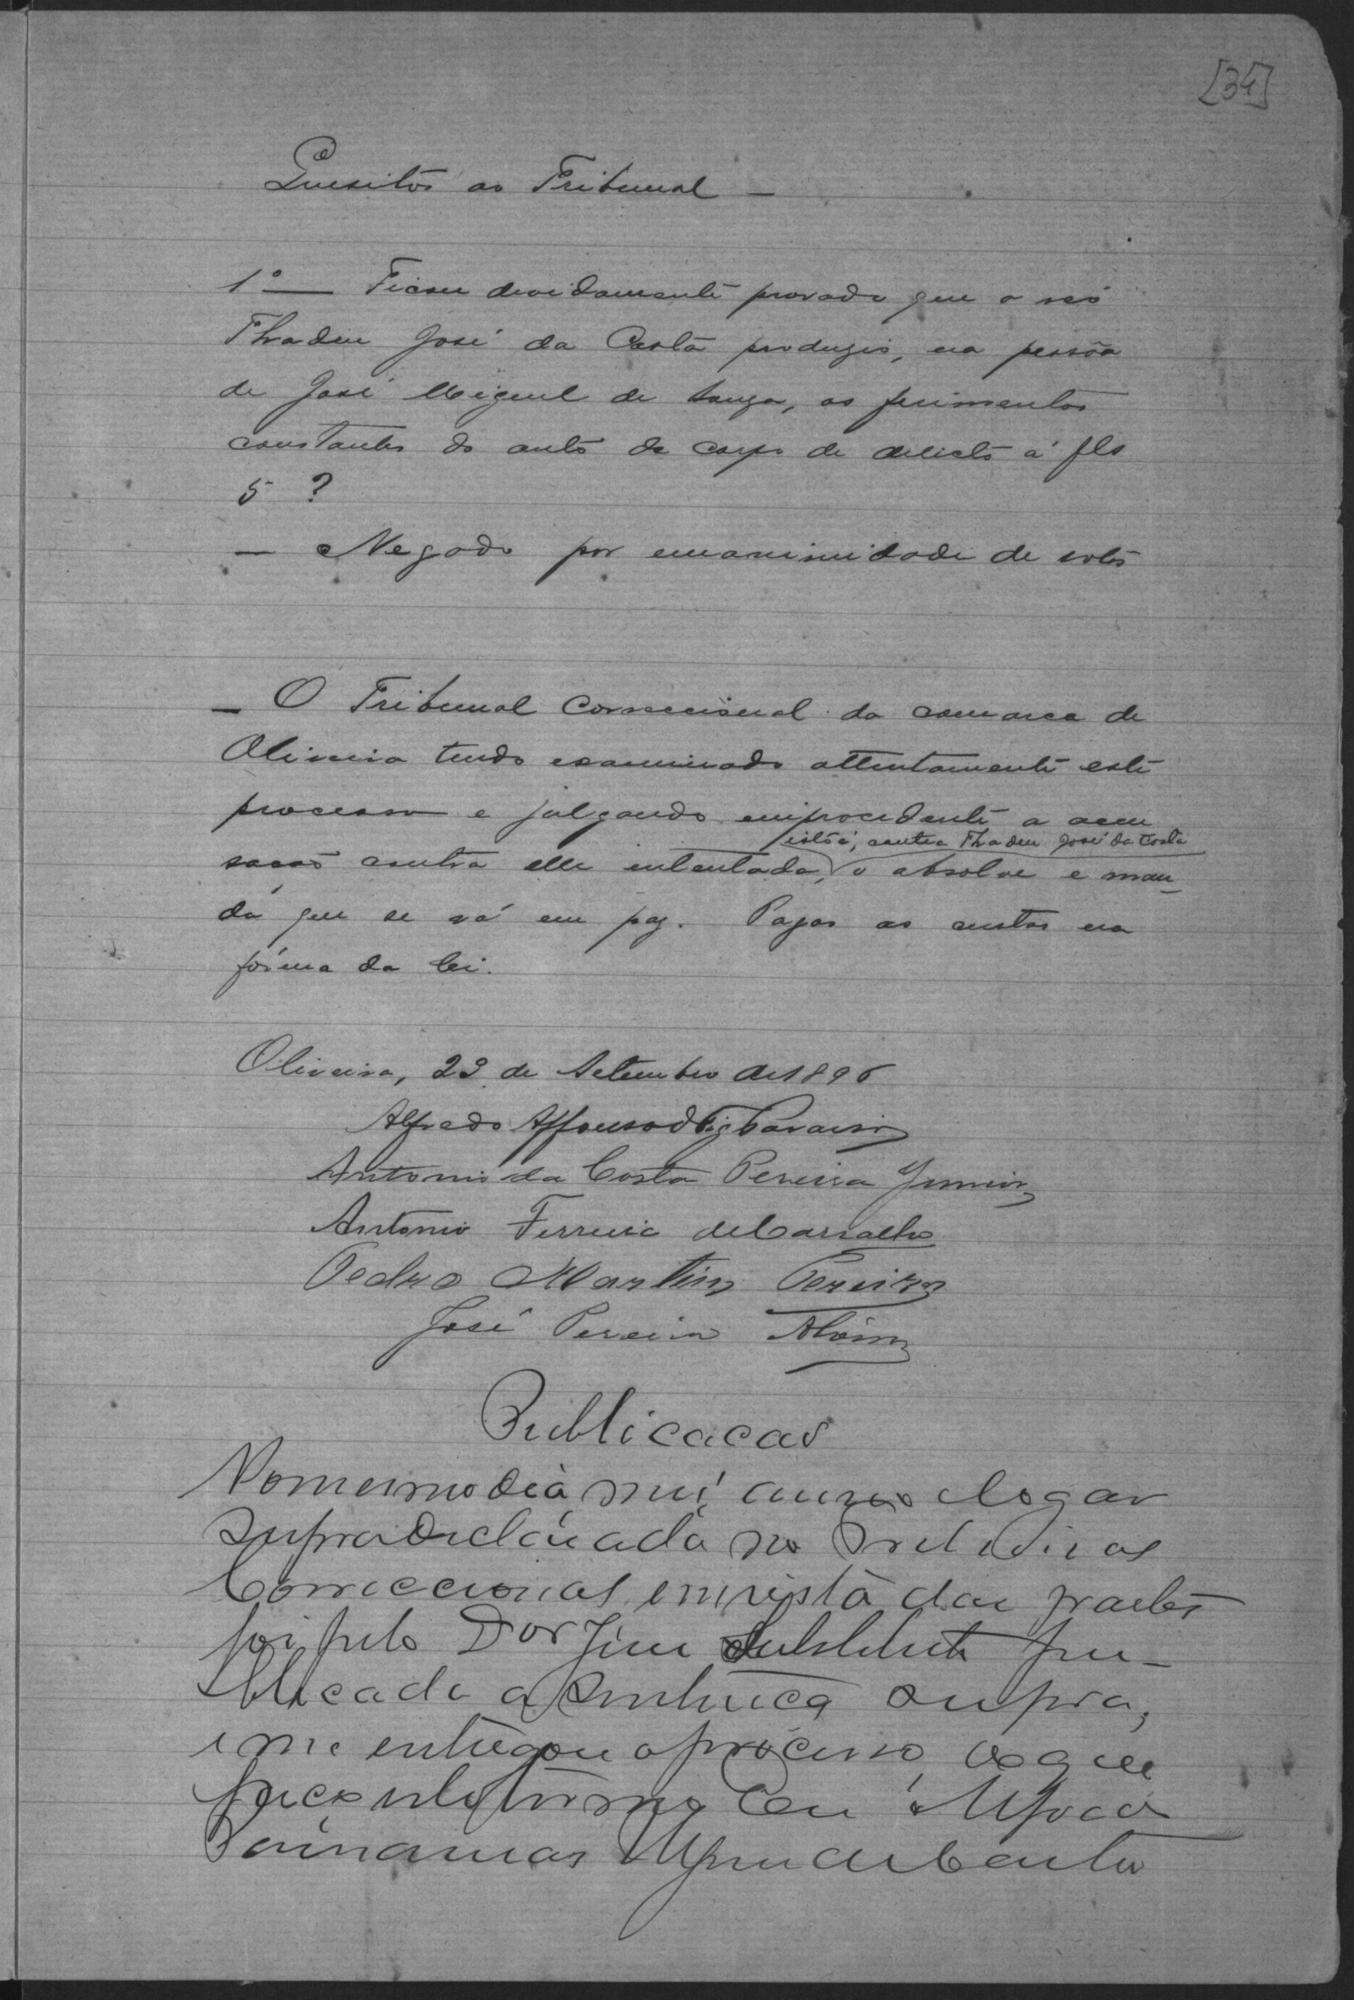 [34]
Quesitos ao Tribunal —
1º — Ficou devidamente provado que o réo
Thadeu José da Costa produzio, na pessôa
de José Miguel de Souza, os ferimentos
constantes do auto de corpo de delicto á fls
5 ?
— Negado por unanimidade de votos
— O Tribunal Correccional da comarca de
Oliveira tendo examinado attentamente este
processo e julgando improcedente a accu
isto é, contra Thadeu José da Costa
sação contra elle intentada, o absolve e man-
da que se vá em paz. Pagas as custas na
fórma da lei.
Oliveira, 23 de Setembro de 1896
Alfredo Affonso
Antonio da Costa Pereira Junior
Antonio Ferreira de Carvalho
Pedro Martins Pereira
José Pereira
Publicacao
No mesmo dia, mez, anno e logar
supra declarado no Tribunal
Correccional em vista das partes
foi pelo Dor Juiz Substituto pu-
blicada a sentença supra,
e me entregou o processo, do que
faço este termo Eu